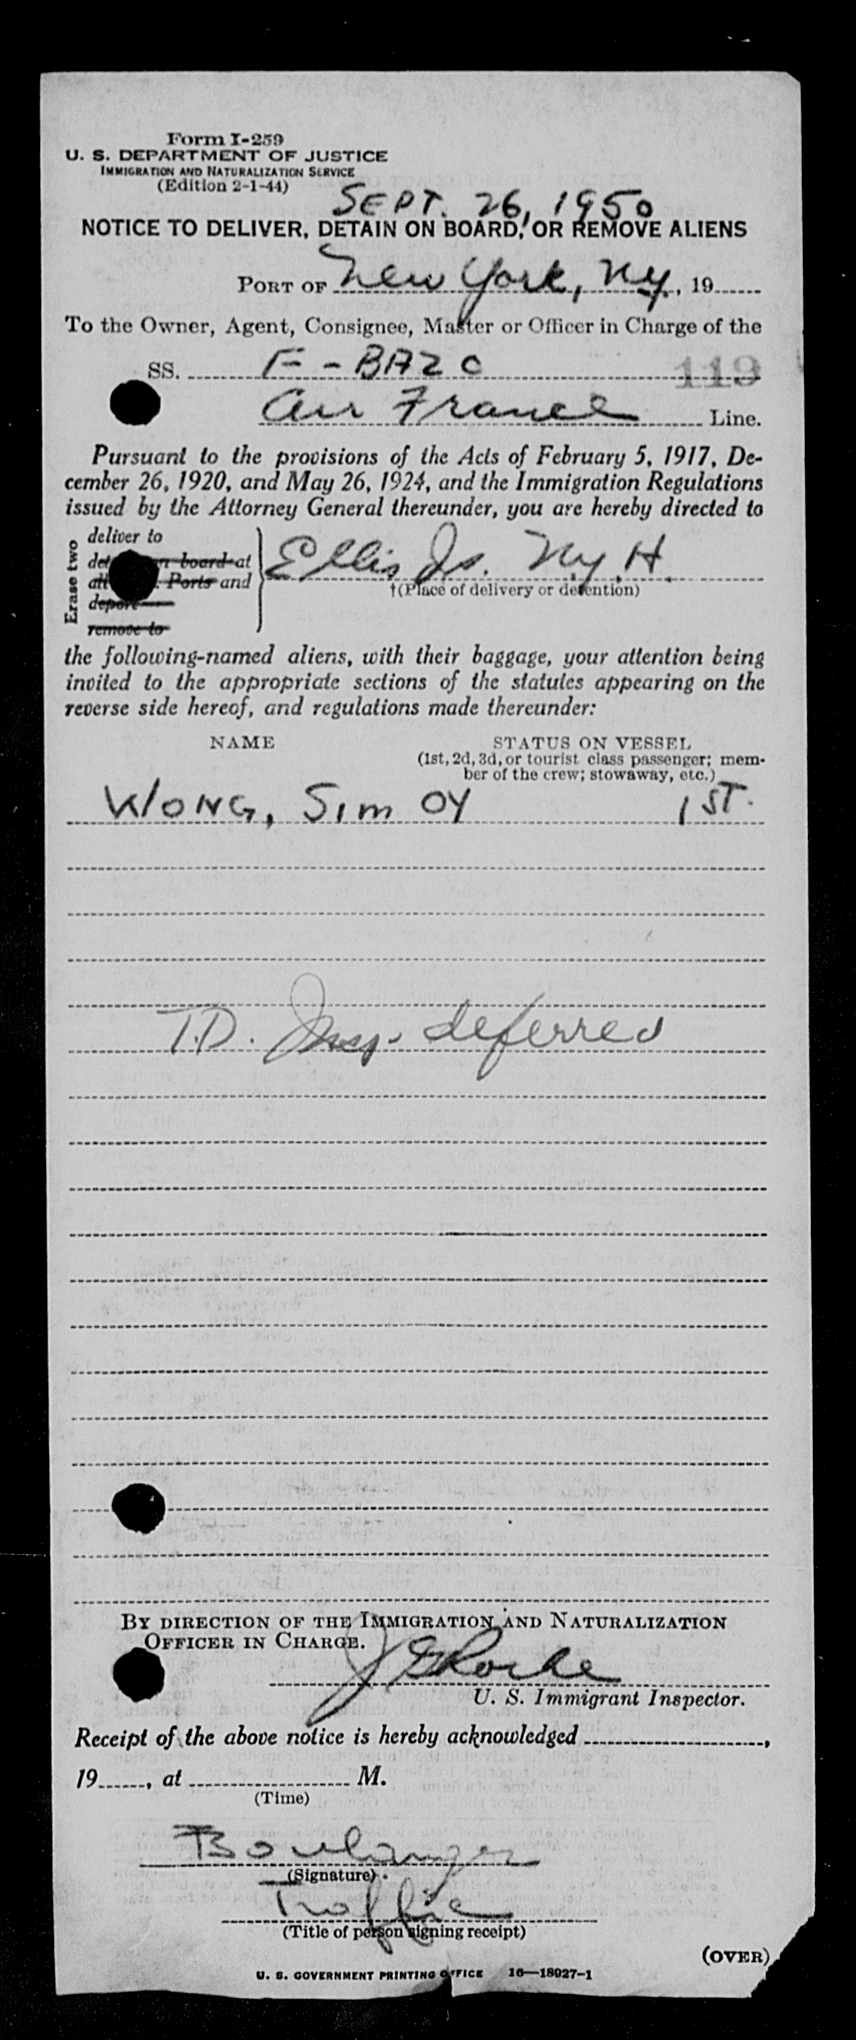 Form I-259
U. S. DEPARTMENT OF JUSTICE
IMMIGRATION AND NATURALIZATION SERVICE
(Edition 2-1-44)
SEPT. 26, 1950
NOTICE TO DELIVER, DETAIN ON BOARD, OR REMOVE ALIENS
PORT OF New York, NY, 19
To the Owner, Agent, Consignee, Master or Officer in Charge of the
SS. F-BAZC 119
Air France Line.
Pursuant to the provisions of the Acts of February 5, 1917, De-
cember 26, 1920, and May 26, 1924, and the Immigration Regulations
issued by the Attorney General thereunder, you are hereby directed to
Erase two
deliver to
board at
Ports and
deport
remove to
Ellis Is. N.Y.H.
†(Place of delivery or detention)
the following-named aliens, with their baggage, your attention being
invited to the appropriate sections of the statutes appearing on the
reverse side hereof, and regulations made thereunder:
NAME STATUS ON VESSEL
(1st, 2d, 3d, or tourist class passenger; mem-
ber of the crew; stowaway, etc.)
WONG, SIM OY 1ST.
T.D. Insp. deferred
BY DIRECTION OF THE IMMIGRATION AND NATURALIZATION
OFFICER IN CHARGE.
U. S. Immigrant Inspector.
Receipt of the above notice is hereby acknowledged ,
19 , at M.
(Time)
Boulanger
(Signature)
Traffic
(Title of person signing receipt)
(OVER)
U. S. GOVERNMENT PRINTING OFFICE 16—18027-1